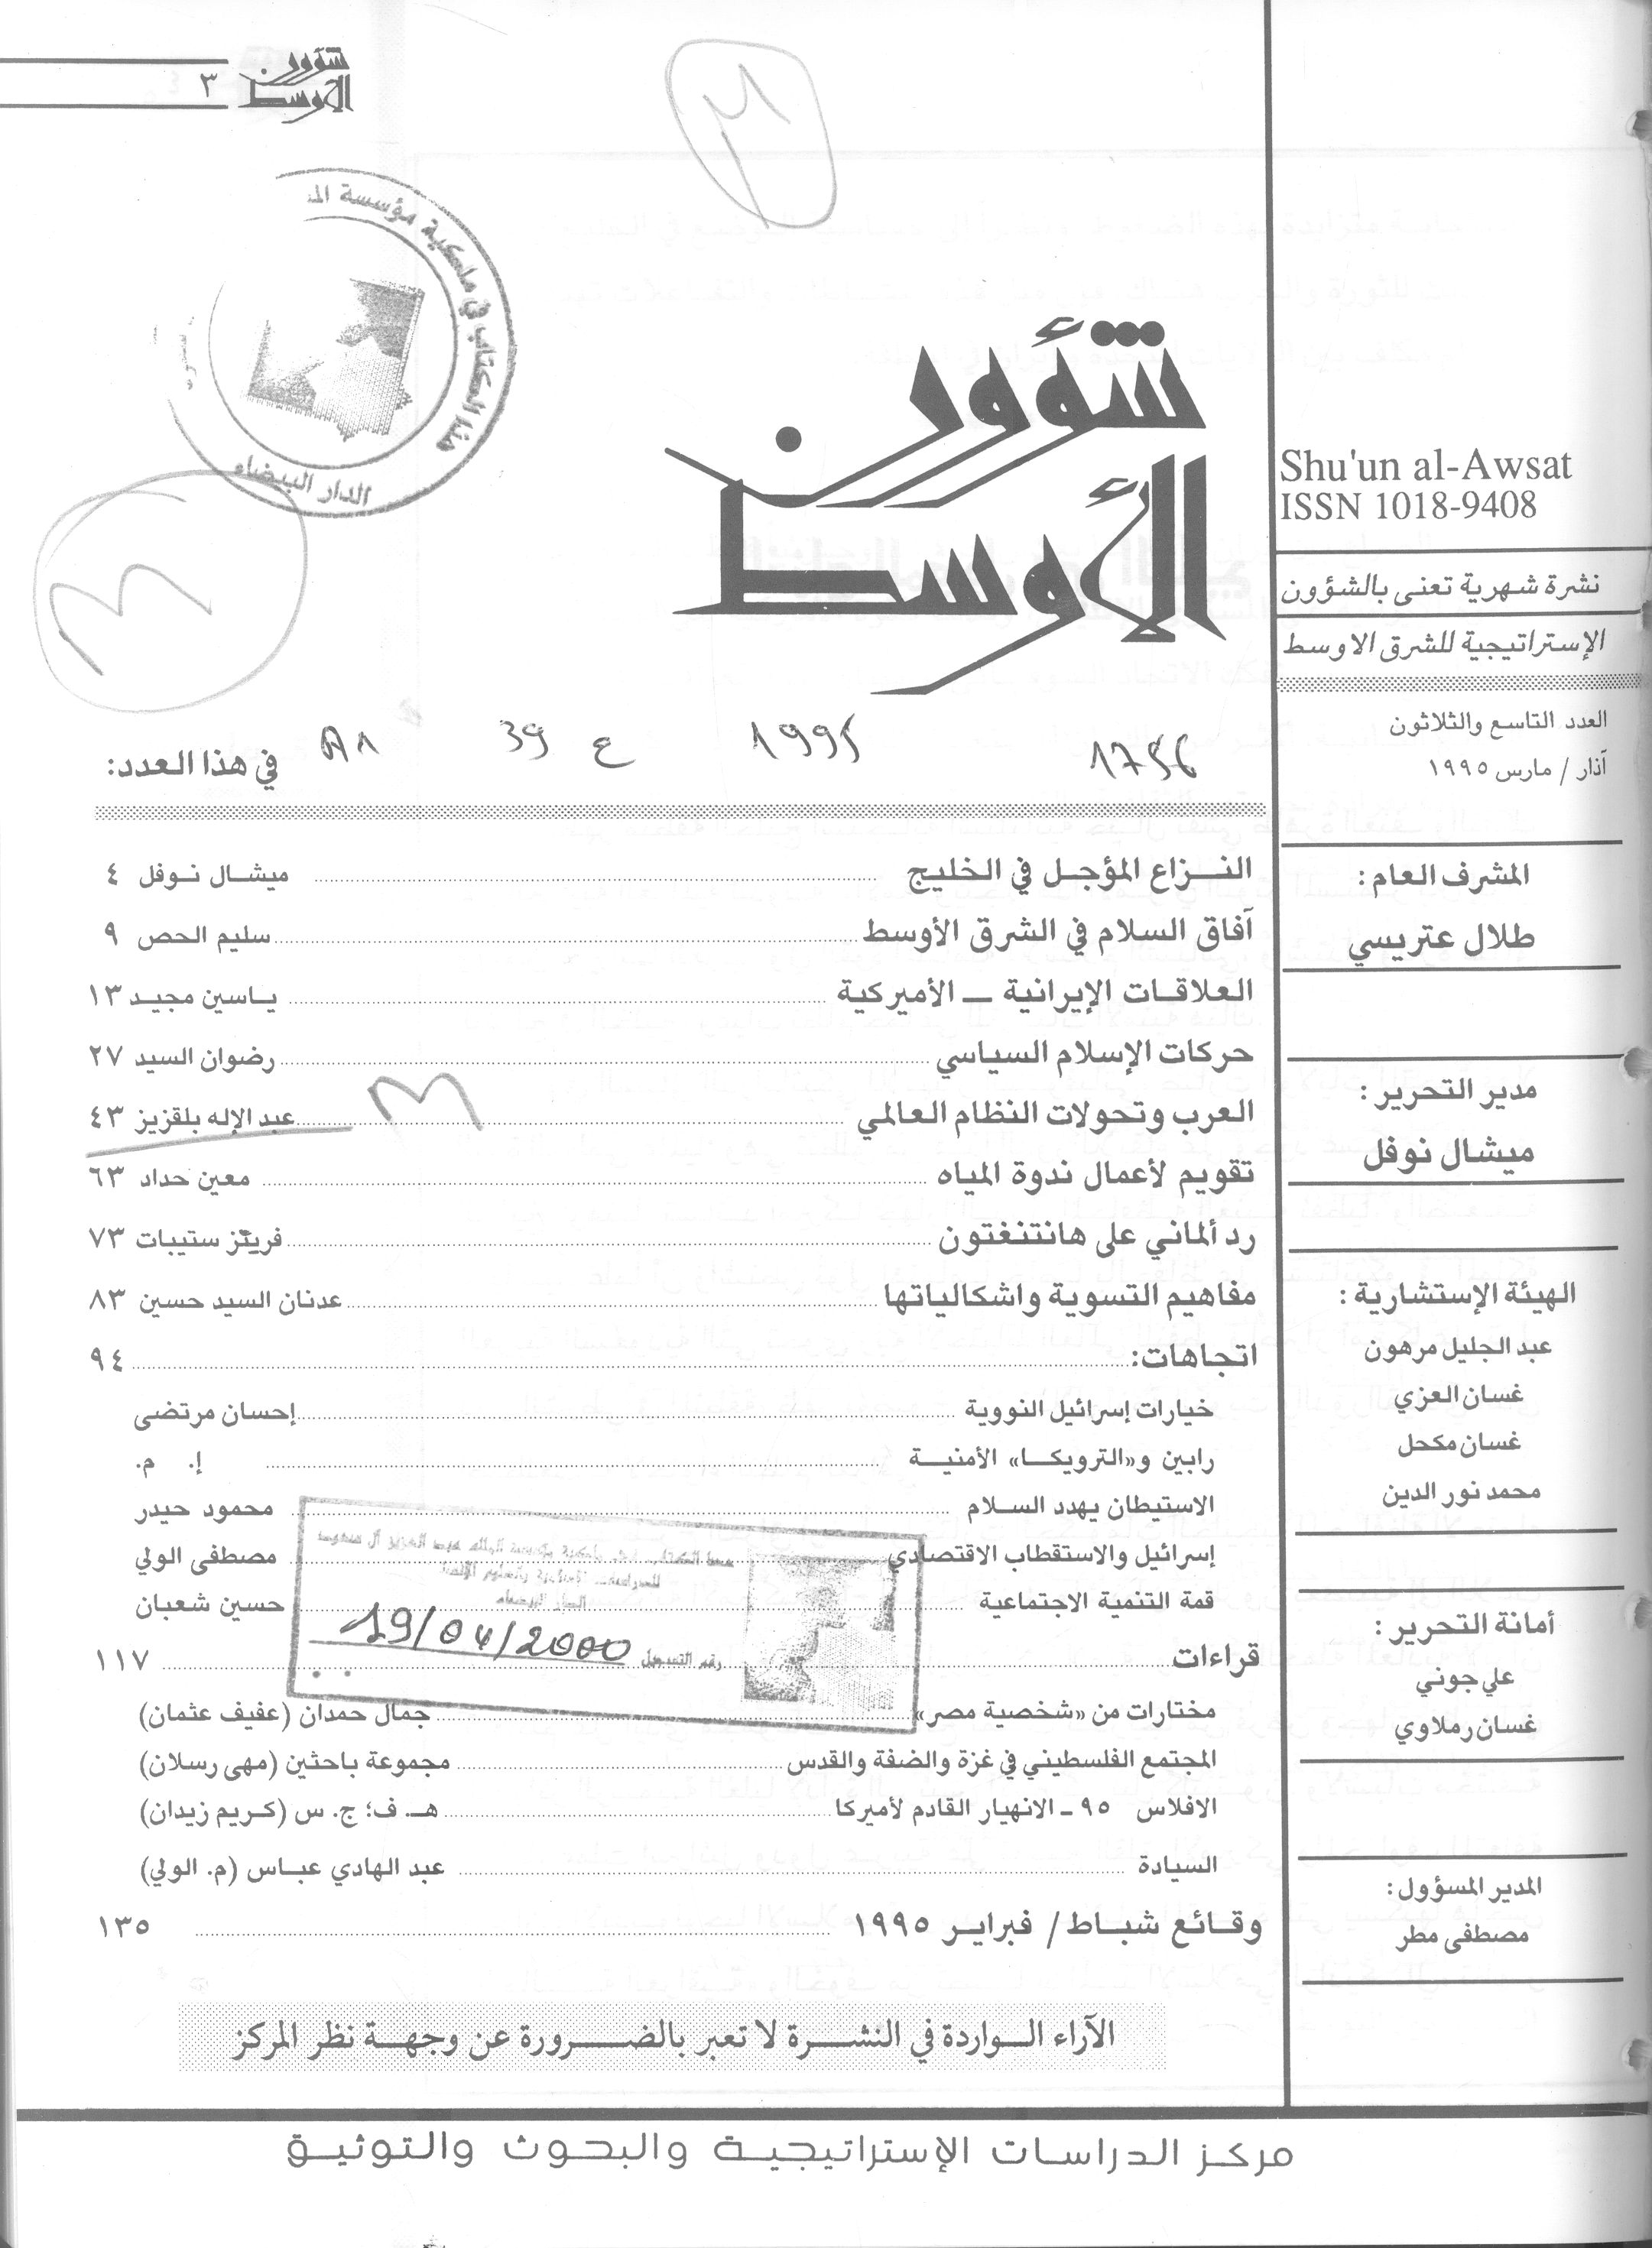 شؤون
الأوسط
٣
هذا الكتاب في ملكية مؤسسة
الدار البيضاء
شؤون
الأوسط
Shu'un al-Awsat
ISSN 1018-9408
نشرة شهرية تعنى بالشؤون
الإستراتيجية للشرق الاوسط
العدد التاسع والثلاثون
آذار / مارس ١٩٩٥
المشرف العام :
طلال عتريسي
مدير التحرير :
ميشال نوفل
الهيئة الإستشارية :
عبد الجليل مرهون
غسان العزي
غسان مكحل
محمد نور الدين
أمانة التحرير :
علي جوني
غسان رملاوي
المدير المسؤول :
مصطفى مطر
1756 1995 ع 39
في هذا العدد:
النزاع المؤجل في الخليج ميشال نوفل ٤
آفاق السلام في الشرق الأوسط سليم الحص ٩
العلاقات الإيرانية ــ الأميركية ياسين مجيد ١٣
حركات الإسلام السياسي رضوان السيد ٢٧
العرب وتحولات النظام العالمي عبد الإله بلقزيز ٤٣
تقويم لأعمال ندوة المياه معين حداد ٦٣
رد ألماني على هانتنغتون فريتز ستيبات ٧٣
مفاهيم التسوية واشكالياتها عدنان السيد حسين ٨٣
اتجاهات: ٩٤
خيارات إسرائيل النووية إحسان مرتضى
رابين و«الترويكا» الأمنية إ. م.
الاستيطان يهدد السلام محمود حيدر
إسرائيل والاستقطاب الاقتصادي مصطفى الولي
قمة التنمية الاجتماعية حسين شعبان
رقم التسجيل 19/04/2000
قراءات ١١٧
مختارات من «شخصية مصر» جمال حمدان (عفيف عثمان)
المجتمع الفلسطيني في غزة والضفة والقدس مجموعة باحثين (مهى رسلان)
الافلاس ٩٥ ـ الانهيار القادم لأميركا هـ. ف؛ ج. س (كريم زيدان)
السيادة عبد الهادي عباس (م. الولي)
وقائع شباط / فبراير ١٩٩٥ ١٣٥
الآراء الواردة في النشرة لا تعبر بالضرورة عن وجهة نظر المركز
مركز الدراسات الإستراتيجية والبحوث والتوثيق